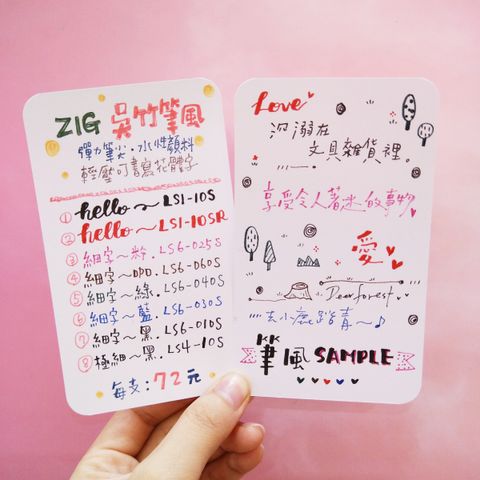 ZIG 吳竹筆風
彈力筆尖.水性顏料
輕壓可書寫花體字
① hello~LS1-10S
② hello~LS1-10SR
③ 細字~粉.LS6-025S
④ 細字~咖.LS6-060S
⑤ 細字~綠.LS6-040S
⑥ 細字~藍.LS6-030S
⑦ 細字~黑.LS6-010S
⑧ 極細~黑.LS4-10S
每支:72元
Love
沉溺在
文具雜貨裡。
享受令人著迷的事物
愛
Deerforest.
去小鹿踏青~♪
筆風 SAMPLE